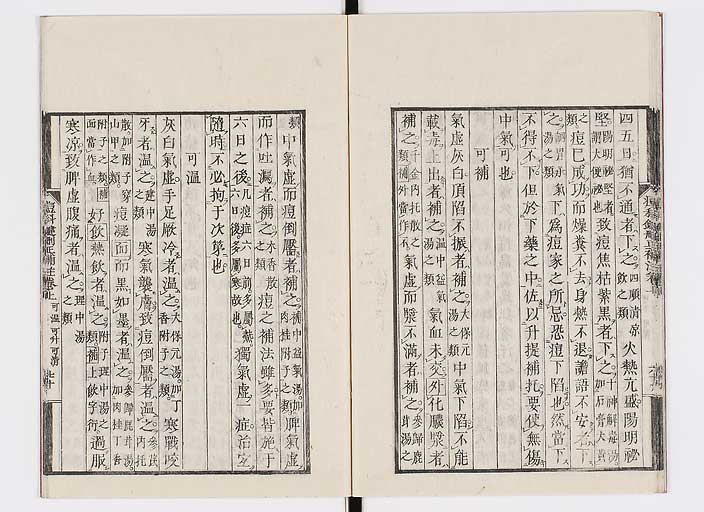 四五日猶不通者下之四順清凉飲之類火熱亢盛陽明祕
堅陽明祕堅者謂大便祕也致痘焦枯紫黑者下之
之痘已成功而燥糞不去身熱不退譫語不安者下
之湯之類下爲痘家之所忌恐痘下陷也然當下
不得不下但於下藥之中佐以升提補托要使無傷
中氣可也
可補
氣虛灰白頂陷不振者補之大保元湯之類中氣下陷不能
載毒上出者補之補中益氣湯之類氣血未交不化膿漿者
補之千金内托散之類補外當作不氣虛而漿不滿者補之參歸鹿茸湯之
類中氣虛而痘倒靨者補之補中益氣湯加肉桂附子之類脾氣虛
而作吐瀉者補之木香散之類痘之補法雖多要皆施于
六日之後凡痘症六日前多屬熱六日後多屬寒故也獨氣虛一症治宜
隨時不必拘于次第也
可温
灰白氣虛手足厥冷者温之大保元湯加丁香附子之類寒戰咬
牙者温之建中湯之類寒氣襲膚致痘倒靨者温之參芪内托
散加附子穿山甲之類痘凝面而黑如墨者温之參歸鹿茸湯加肉桂丁香
附子之類面當作血好飲熱飲者温之附子理中湯之類補上飲字衍過服
寒涼致脾虛腹痛者温之理中湯之類
可温可升可清